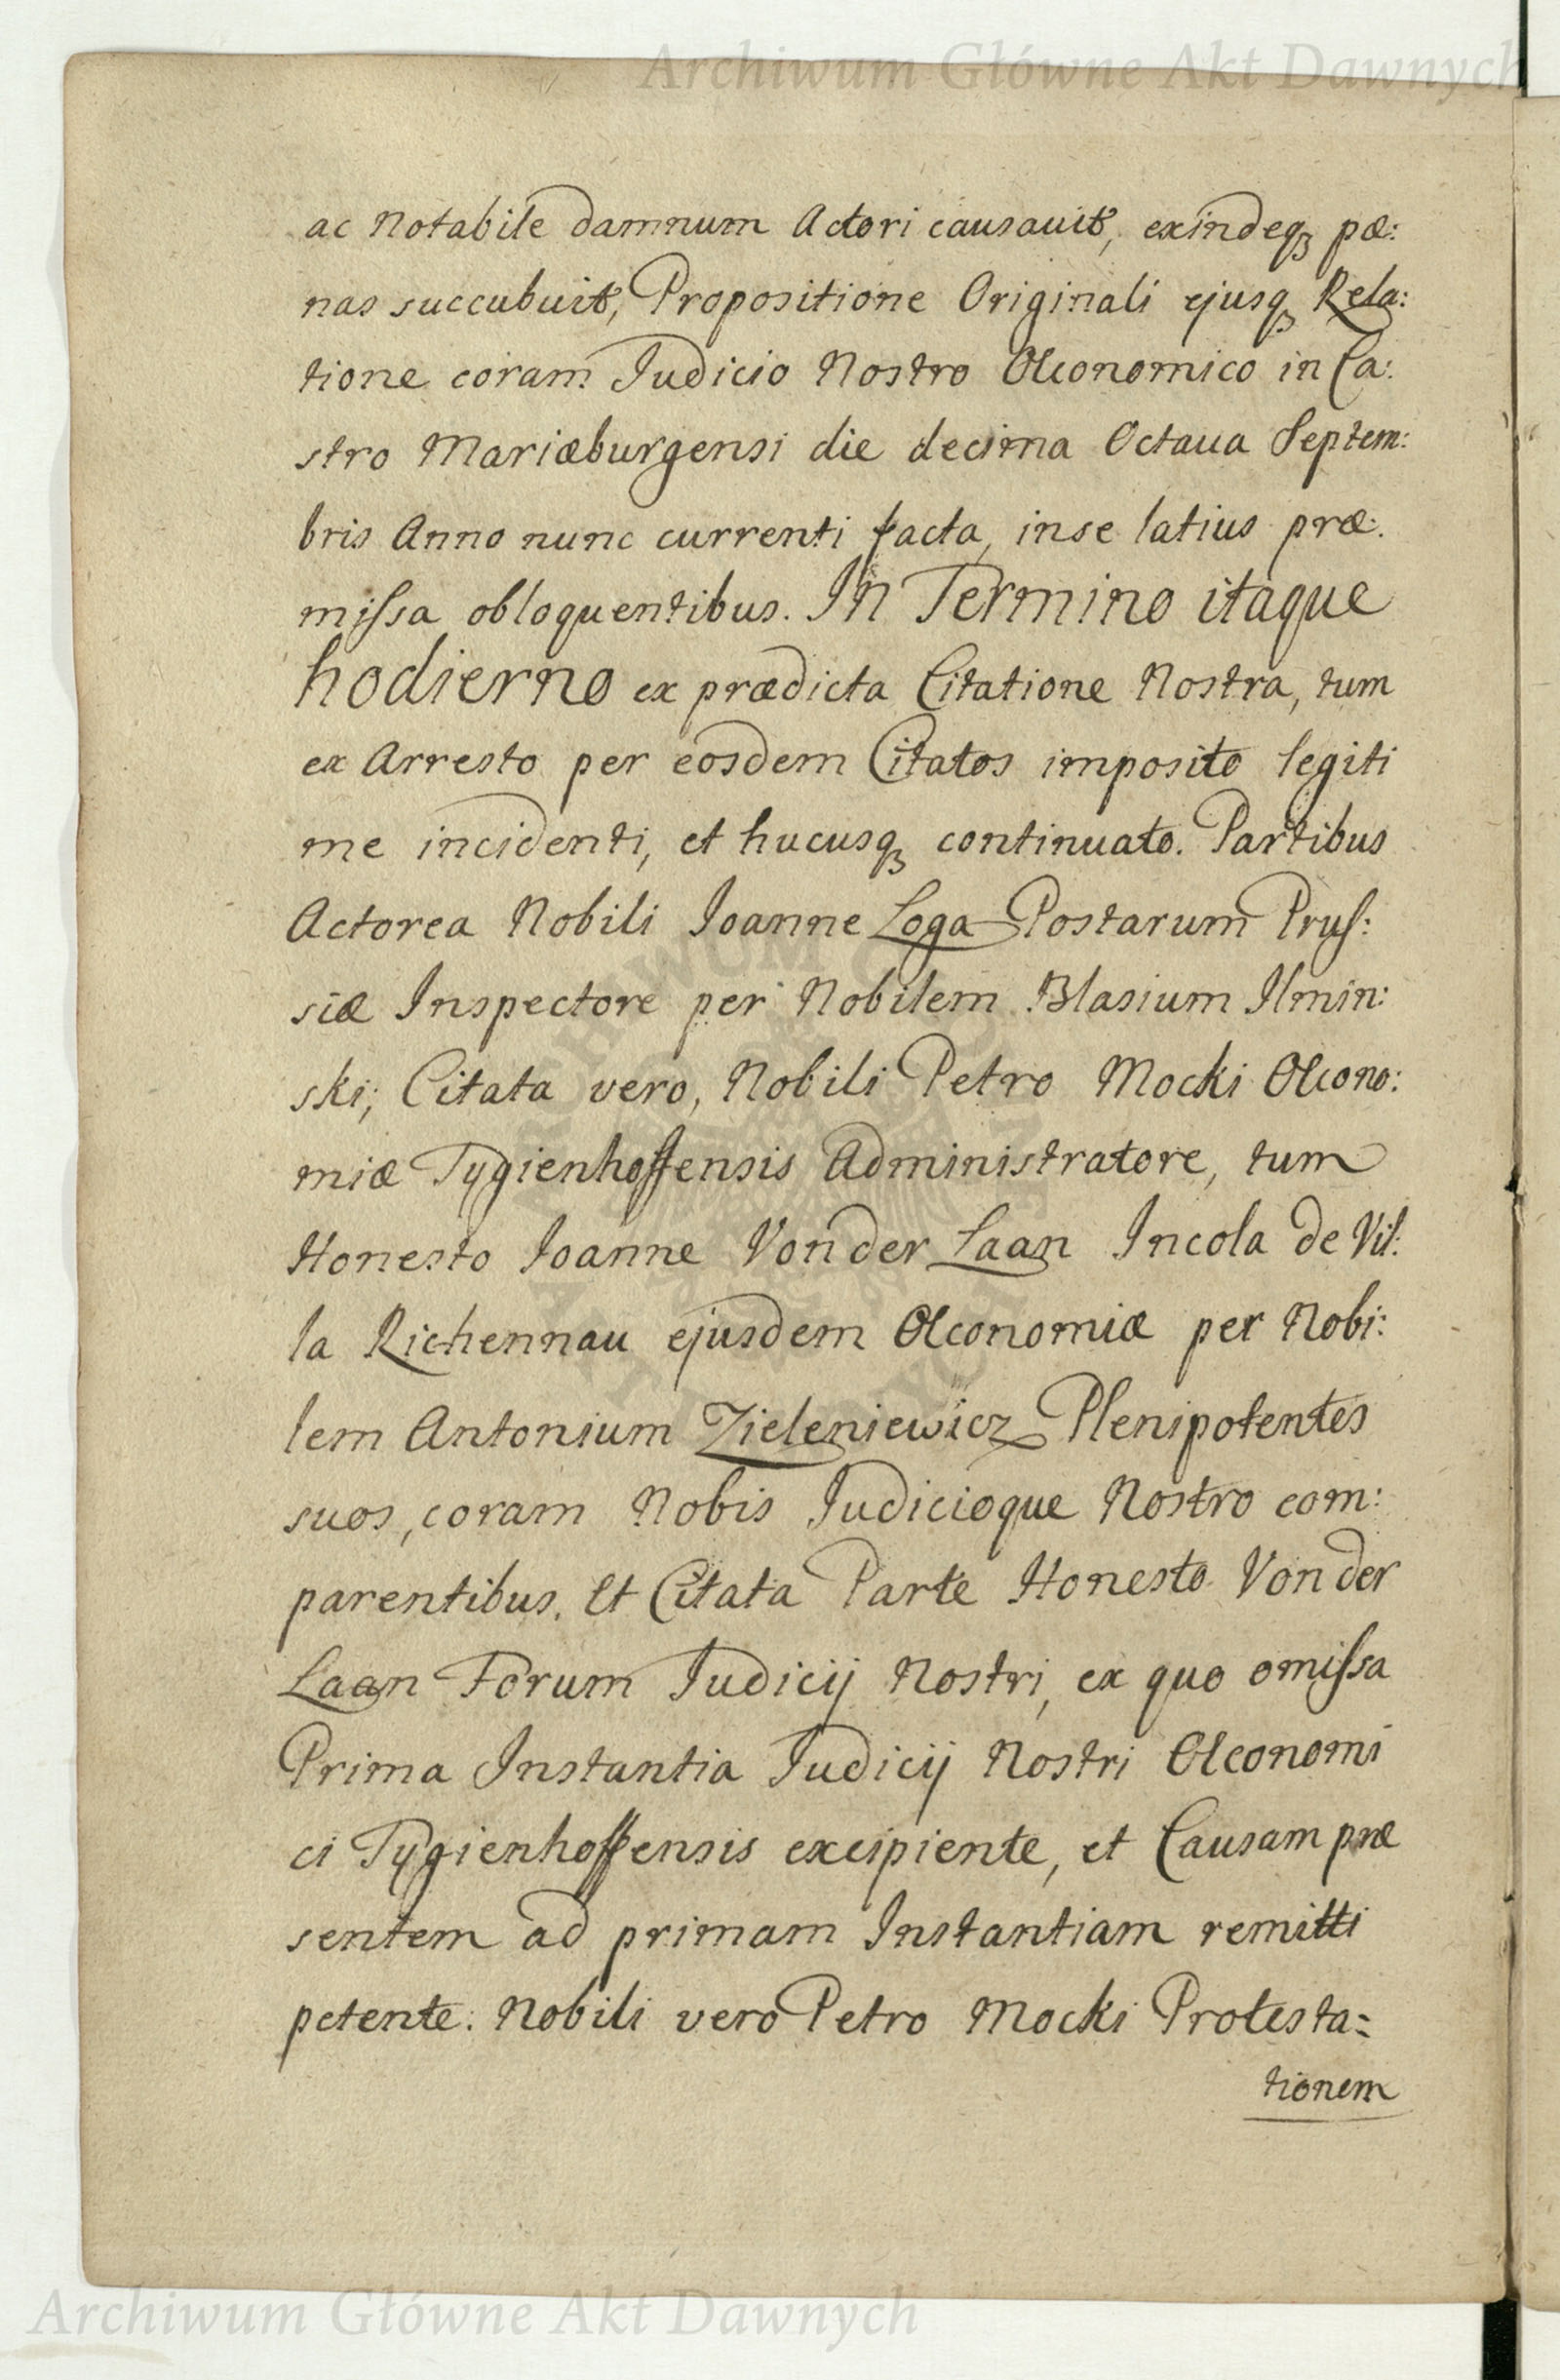 Archiwum Główne Akt Dawnych
ac Notabile damnum Actori causauit, exindeq₃ pæ:
nas succubuit, Propositione Originali ejusq₃ Rela:
tione coram Judicio Nostro Oeconomico in Ca:
stro Mariæburgensi die decima Octaua Septem:
bris Anno nunc currenti facta, inse latius præ:
mißa obloquentibus. In Termino itaque
hodierno ex prædicta Citatione Nostra, tum
ex Arresto per eosdem Citatos imposito legiti
me incidenti, et hucusq₃ continuato. Partibus
Actorea Nobili Joanne Loga Postarum Pruſ:
siæ Inspectore per Nobilem Blasium Ilmin:
ski; Citata vero, Nobili Petro Mocki Oecono:
miæ Tygienhoffensis Administratore, tum
Honesto Joanne Von der Laan Incola de Vil:
la Richennau ejusdem Oeconomiæ per Nobi:
lem Antonium Zieleniewicz Plenipotentes
suos, coram Nobis Judicioque Nostro com:
parentibus. Et Citata Parte Honesto Von der
Laan Forum Judicij Nostri, ex quo omiſsa
Prima Instantia Judicij Nostri Oeconomi
ci Tygienhoffensis excipiente, et Causam præ
sentem ad primam Instantiam remitti
petente. Nobili vero Petro Mocki Protesta=
tionem
Archiwum Główne Akt Dawnych